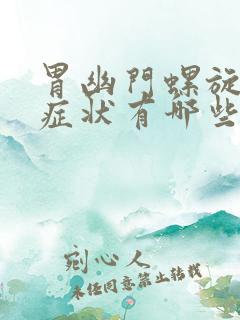 胃幽門螺旋
症状有哪些
剜心人
未经同意禁止转载